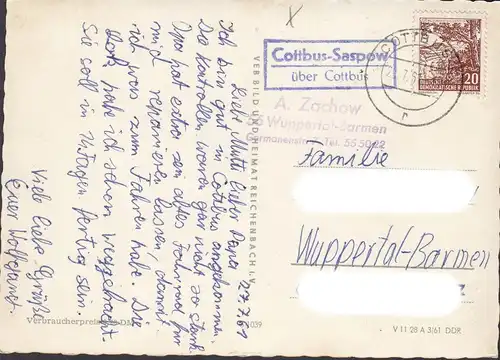 27.7.61
Liebe Mutti lieber Papa
Ich bin gut in Cottbus angekommen.
Die Kontrollen waren gar nicht so stark.
Opa hat extra sein altes Fahrrad für
mich reparieren lassen, damit
ich was zum Fahren habe. Die
habe ich schon weggebracht.
Sie soll in Tagen fertig sein.
Viele liebe Grüße
Euer Wolfgang.
VEB BILD UND HEIMAT REICHENBACH i. V.
Cottbus-Saspow
über Cottbus
COTTBUS
20
DEUTSCHE
DEMOKRATISCHE REPUBLIK
A. Zachow
Wuppertal-Barmen
Germanenstr. Tel. 55 50 22
Familie
Wuppertal-Barmen
Verbraucherpreis
039
V 11 28 A 3/61 DDR